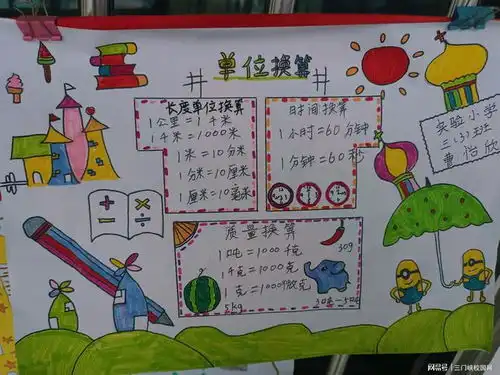 # 单位换算 #
长度单位换算
1公里=1千米
1千米=1000米
1米=10分米
1分米=10厘米
1厘米=10毫米
时间换算
1小时=60分钟
1分钟=60秒
实验小学
三(3)班
曹怡欣
+ -
× ÷
质量换算
1吨=1000千克
1千克=1000克
1克=1000微克
30g
5kg
网易号 | 三门峡校园网